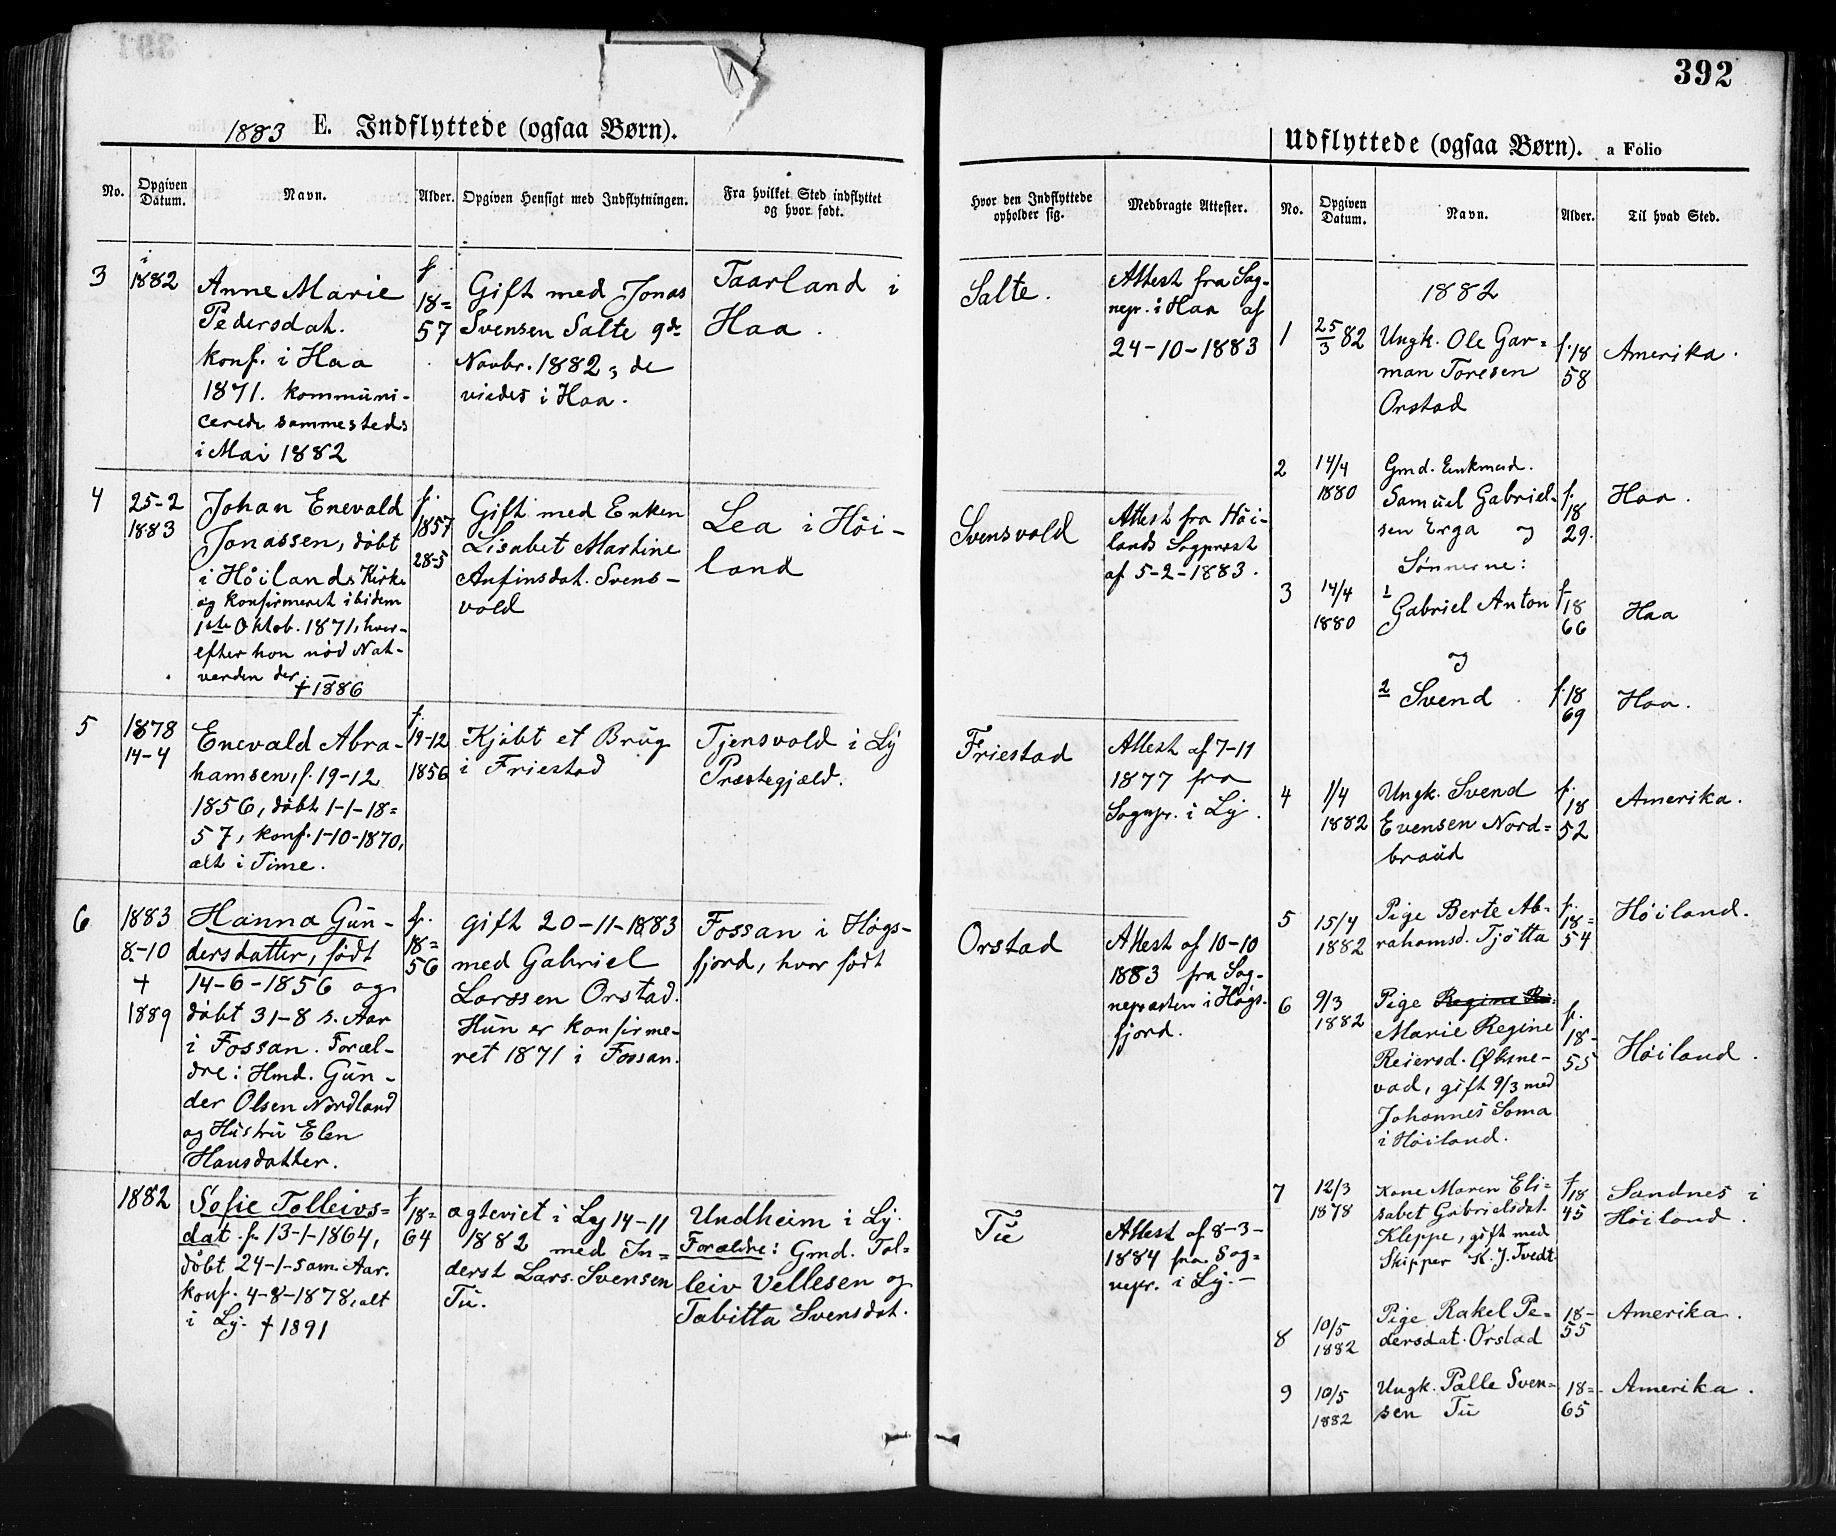 392
1883 E. Indflyttede (ogsaa Børn).
Udflyttede (ogsaa Børn). a Folio
No.
Opgiven Datum.
Navn.
Alder.
Opgiven Hensigt med Indflytningen.
Fra hvilket Sted indflyttet
og hvor født.
Hvor den Indflyttede
opholder sig.
Medbragte Attester.
No.
Opgiven Datum.
Navn.
Alder.
Til hvad Sted.
3
i
1882
Anne Marie
Pedersdat.
konf. i Haa
1871. kommuni-
cerede sammesteds
i Mai 1882
f.
18=
57
Gift med Jonas
Svensen Salte 9de
Novbr. 1882, de
viedes i Haa.
Taarland i
Haa.
Salte.
Attest fra Sog-
nepr. i Haa af
24-10-1883
4
25-2
1883
Johan Enevald
Jonassen, døbt
i Høilands Kirke
og konfirmeret ibidem
1ste Oktob. 1871, hvor-
efter han nød Nat-
verden der.
† 1886
f.
1857
28-5
Gift med Enken
Lisabet Martine
Anfinsdat. Svens-
vold
Lea i Høi-
land
Svensvold
Attest fra Høi-
lands Sogprest
af 5-2-1883.
5
1878
14-4
Enevald Abra-
hamsen, f. 19-12
1856, døbt 1-1-18=
57, konf. 1-10-1870,
alt i Time.
f.
19-12
1856
Kjøbt et Brug
i Friestad
Tjensvold i Ly
Præstegjæld.
Friestad
Attest af 7-11
1877 fra
Sognpr. i Ly.
6
1883
8-10
†
1889
Hanna Gun-
dersdatter, født
14-6-1856 og
døbt 31-8 s. Aar
i Fossan. Foræl-
dre: Hmd. Gun-
der Olsen Nordland
og Hustru Elen
Hansdatter.
f.
18=
56
gift 20-11-1883
med Gabriel
Larssen Orstad.
Hun er konfirme-
ret 1871 i Fossan.
Fossan i Høgs-
fjord, hvor født
Orstad
Attest af 10-10
1883 fra Sog-
nepræsten i Høgs-
fjord.
1882
Sofie Tolleivs=
dat. f. 13-1-1864,
døbt 24-1-sam. Aar.
konf. 4-8-1878, alt
i Ly. † 1891
f
18=
64
ægteviet i Ly 14-11
1882 med In=
derst Lars Svensen
Tu.
Undheim i Ly.
Forældre: Gmd. Tol-
leiv Vellesen og
Tabitta Svensdat.
Tu
Attest af 8-3-
1884 fra Sog-
nepr. i Ly.-
1882
1
25/3 82
Ungk. Ole Gar=
man Toresen
Orstad
f. 18
58
Amerika.
2
14/4
1880
Gmd. Enkmad.
Samuel Gabriel-
sen Erga og
Sønnerne:
f.
18
29.
Haa.
3
14/4
1880
1 Gabriel Anton
f. 18
66
Haa
og
2 Svend
f. 18
69
Haa.
4
1/4
1882
Ungk. Svend
Evensen Nord=
braud
f.
18
52
Amerika.
5
15/4
1882
Pige Berte Ab-
rahamsd. Tjøtta
f.
18=
54
Høiland.
6
9/3
1882
Pige Regine
Marie Regine
Reiersd. Øksne-
vad, gift 9/3 med
Johannes Soma
i Høiland.
f.
18-
55
Høiland.
7
12/3
1878
Kone Maren Eli-
sabet Gabrielsdat.
Kleppe, gift med
Skipper K. J. Tvedt
f.
18
45
Sandnes i
Høiland.
8
10/5
1882
Pige Rakel Pe-
dersdat. Orstad
18-
55
Amerika.
9
10/5
1882
Ungk. Palle Sven-
sen Tu
18=
65
Amerika.